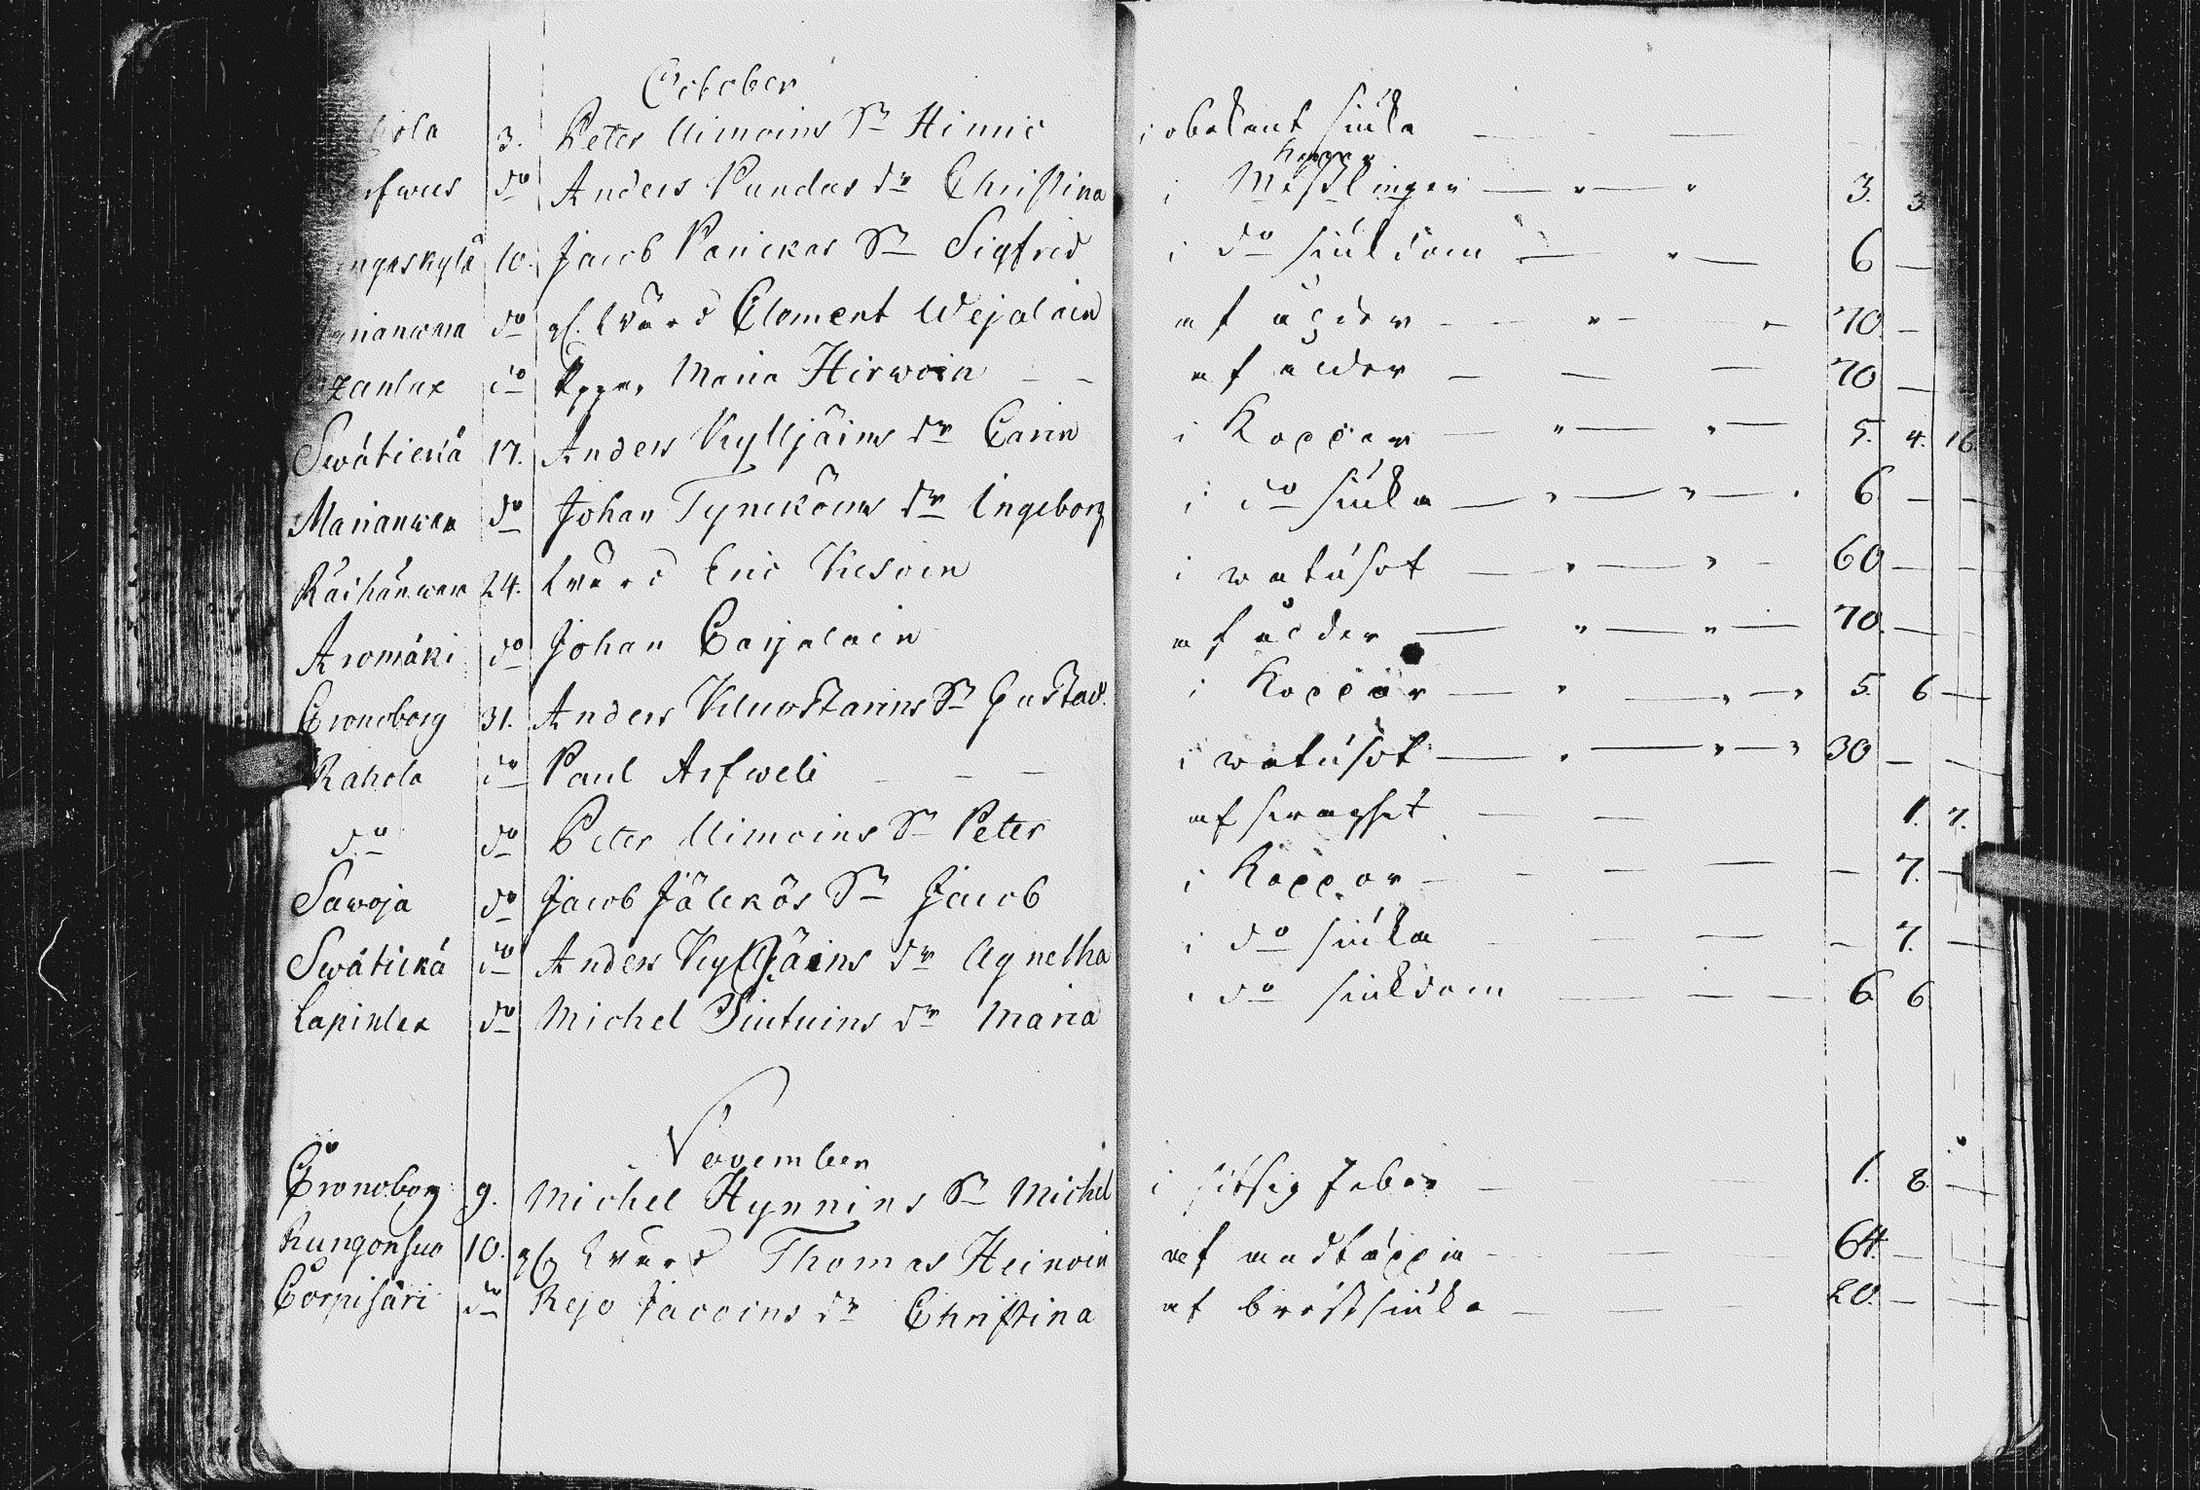 October
3. Peter Uimoins Sn Hinric i obekant siuka
do Anders Pundas dr Christina i Mässlingen 3. 3
10. Jacob Panickas Sn Sigfrid i do siukdom 6 —
do gl. Enkl Clement Wejalain af ålder 70. —
do Maria Hirwoin af ålder 70 —
Swätickä 17. Anders Kylljäins dr Carin i Koppor 5. 4. 16
Marianwaa do Johan Tyncköins dr Ingeborg i do siuka 6 — —
Räihänwaa 24. Eric Kesoin i watusot 60 — —
Aromäki do Johan Carjalain af ålder 70. —
Cronoborg 31. Anders Kluostarins Sn Gustav i Koppor 5. 6 —
Rahola do Paul Arfweli i watusot 30 — —
do do Peter Uimoins Sn Peter af 1. 7.
Sawoja do Jacob Jälckös Sn Jacob i Koppor — 7. —
Swätickä do Anders Kylljäins dr Agnetha i do siuka — 7. —
Lapinlax do Michel Siutuins dr Maria i do siukdom 6 6
November
Cronoborg 9. Michel Hynnins Sn Michel i hitsig feber 1. 8. —
Kungonsuo 10. Thomas Heinoin af 64. —
Corpisari do Rejo Jacoins dr Christina af bröstsiuka 20. — —